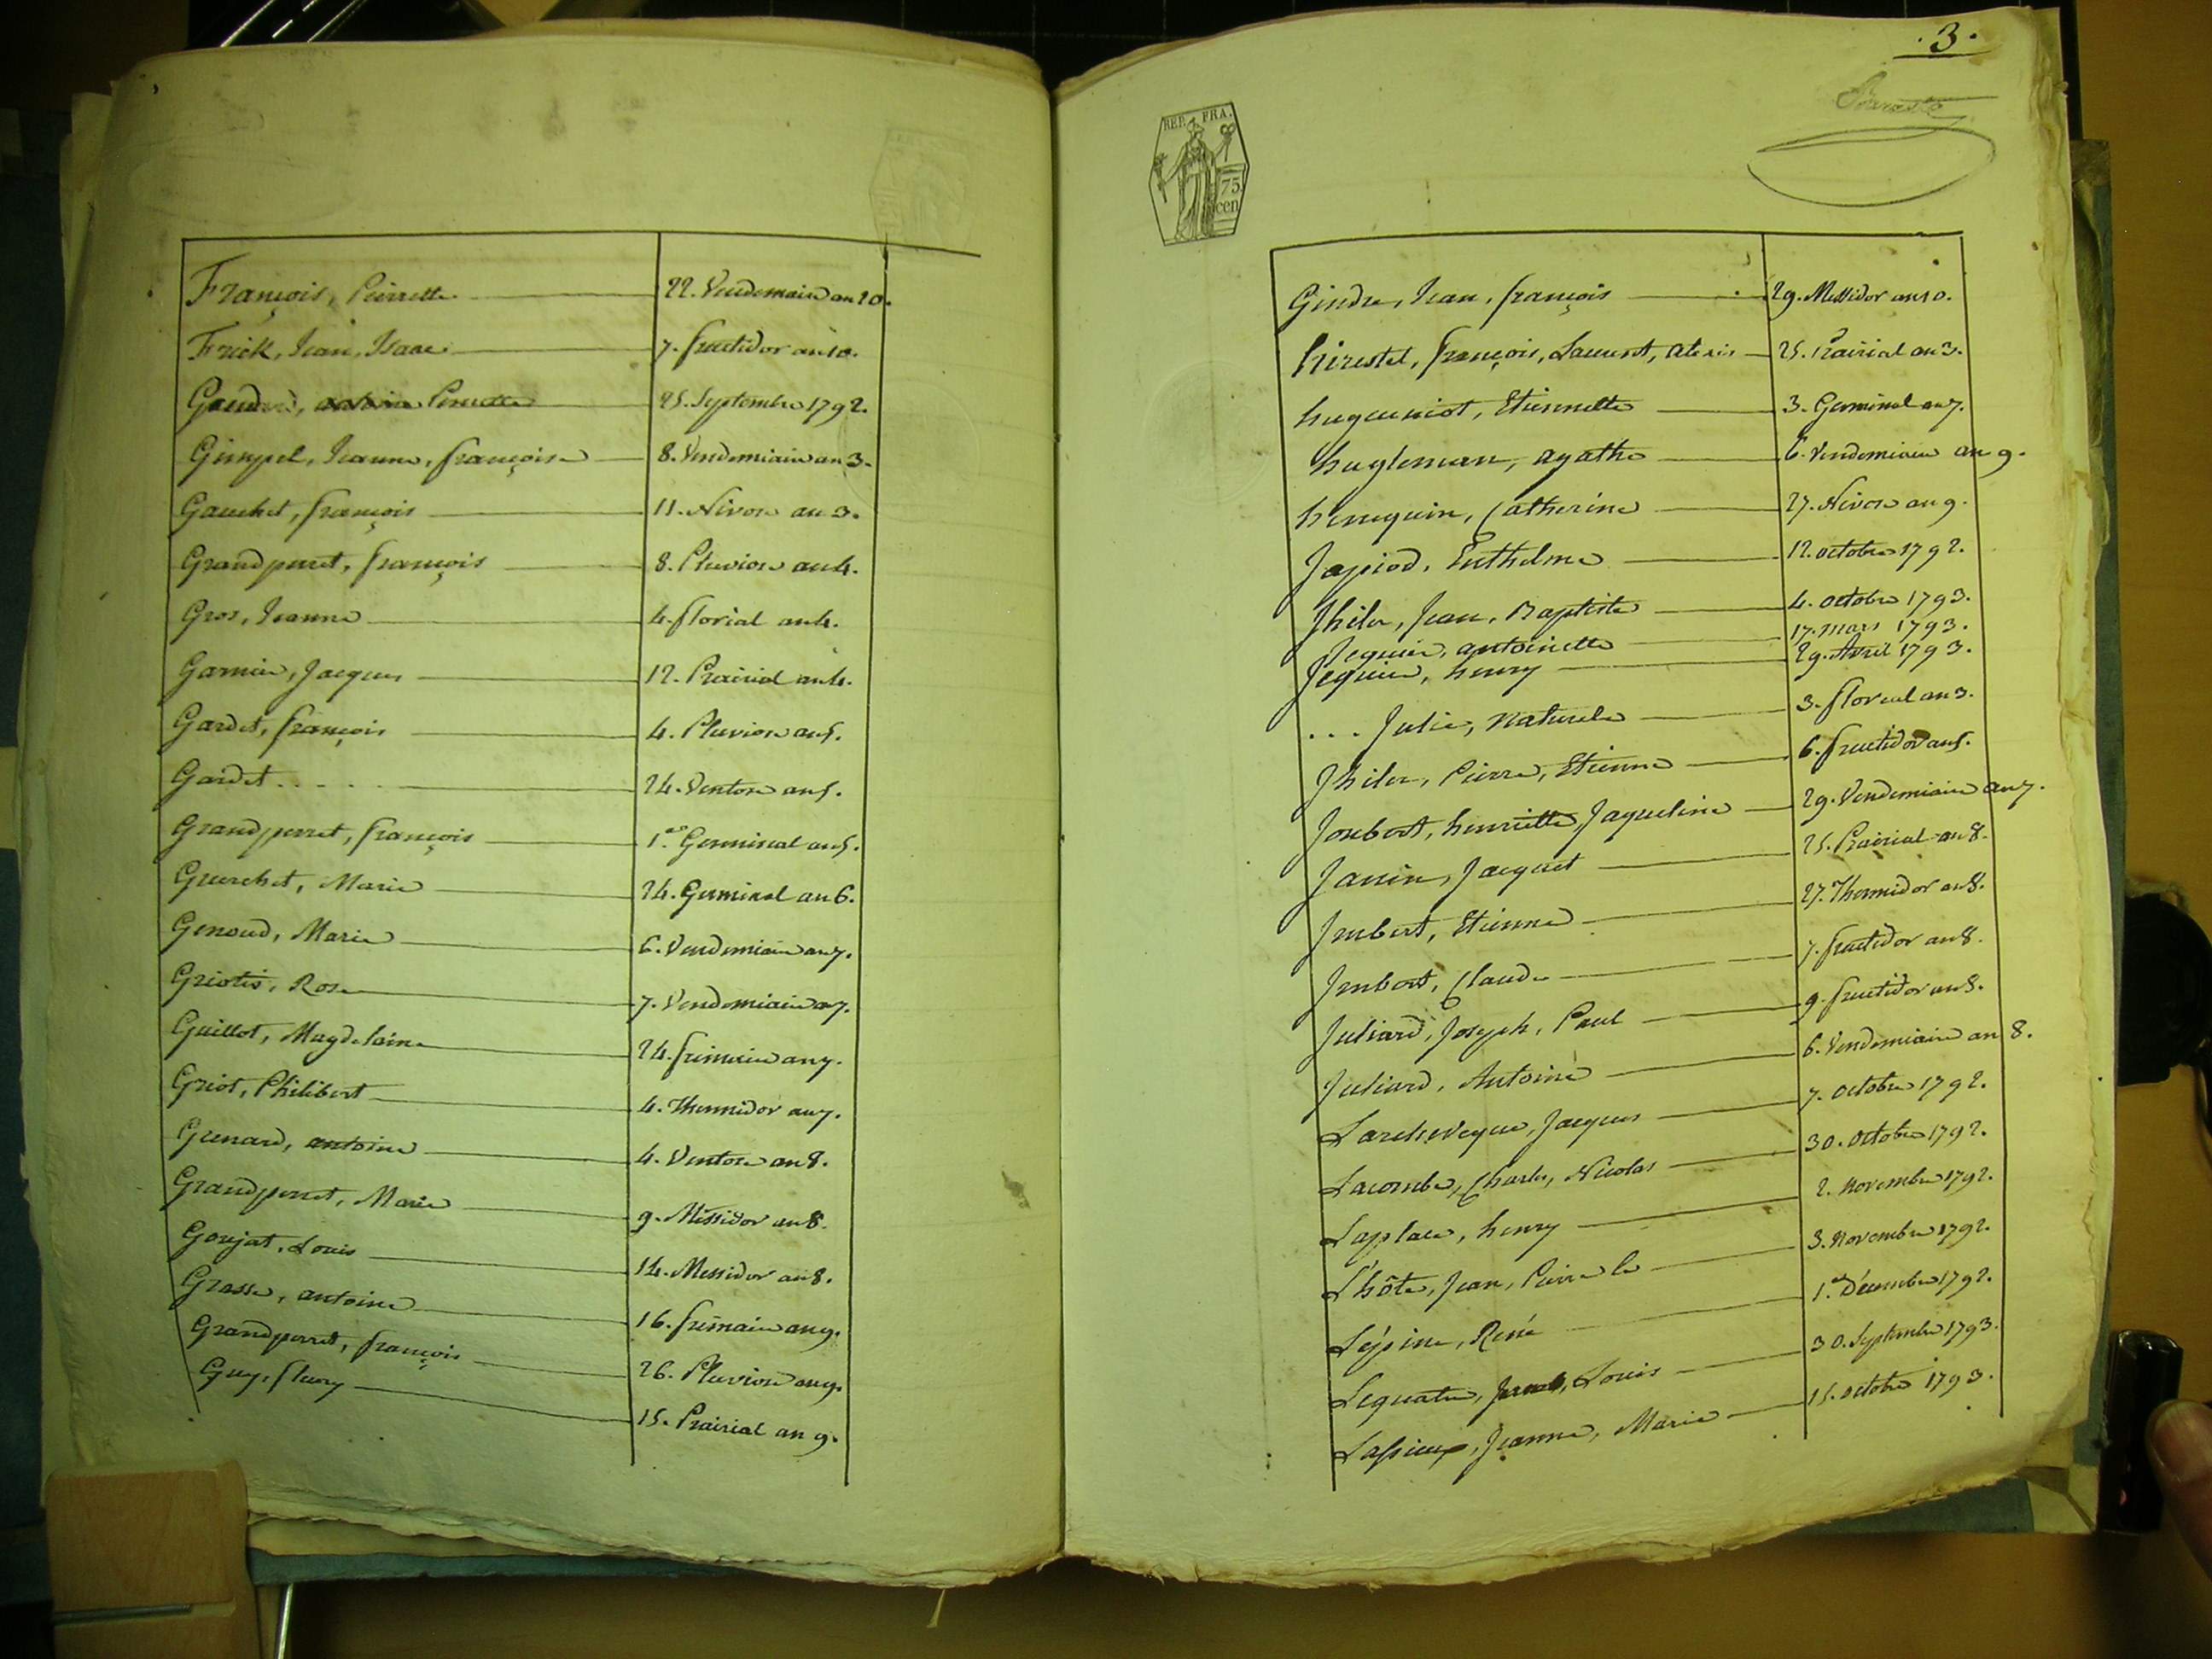 François, Pierrette 22. Vendemaire an 10.
Frick, Jean, Isaac 7. fructidor an 10.
Perrette 25. Septembre 1792.
Gimpel, Jeanne, françoise 8. Vendemiaire an 3.
Gauchet, françois 11. Nivose an 3.
Grandperret, françois 8. Pluviose an 4.
Gros, Jeanne 4. florial an 4.
Garnier, Jacques 12. Prairial an 4.
Gardet, françois 4. Pluviose an 5.
Gardet . . . . 24. Ventose an 5.
Grandperret, françois 1.er Germinal an 5.
Guerchet, Marie 24. Germinal an 6.
Genoud, Marie 6. Vendemiaire an 7.
Griotis, Rose 7. Vendemiaire an 7.
Guillot, Magdelaine 24. frimaire an 7.
Griot, Philibert 4. Thermidor an 7.
Grenard, antoine 4. Ventose an 8.
Grandperret, Marie 9. Messidor an 8.
Goujat, Louis 14. Messidor an 8.
Grasse, antoine 16. frimaire an 9.
Grandperret, françois 26. Pluviose an 9.
Guy, fleury 15. Prairial an 9.
. 3 .
REP. FRA.
75 cen
Gindre, Jean, françois 29. Messidor an 10.
hirestel, françois, Laurent, alexis 25. Prairial an 3.
hugueniot, Etiennette 3. Germinal an 7.
hugleman, agathe 6. Vendemiaire an 9.
henequin, Catherine 27. Nivose an 9.
Japiod, Enthelme 12. octobre 1792.
Jhiler, Jean, Baptiste 4. octobre 1793.
Jequier, antoinette 17. mars 1793.
Jequier, henry 29. Avril 1793.
. . . Julie, naturele 3. floreal an 3.
Jhiler, Pierre, Etienne 6. fructidor an 5.
Joubert, henriette, Jaqueline 29. Vendemiaire an 7.
Janin, Jacquet 25. Prairial an 8.
Imbert, Etienne 27. Thermidor an 8.
Imbert, Claude 7. fructidor an 8.
Juliard, Joseph, Paul 9. fructidor an 8.
Juliard, Antoine 6. Vendemiaire an 8.
Larcheveque, Jacques 7. octobre 1792.
Lacombe, Charles, Nicolas 30. octobre 1792.
Laplace, henry 2. novembre 1792.
L'hôte, Jean, Pierre le 3. novembre 1792.
Lépine, René 1.er Décembre 1792.
Lequatre, Louis 30. Septembre 1793.
Lassieux, Jeanne, Marie 15. octobre 1793.